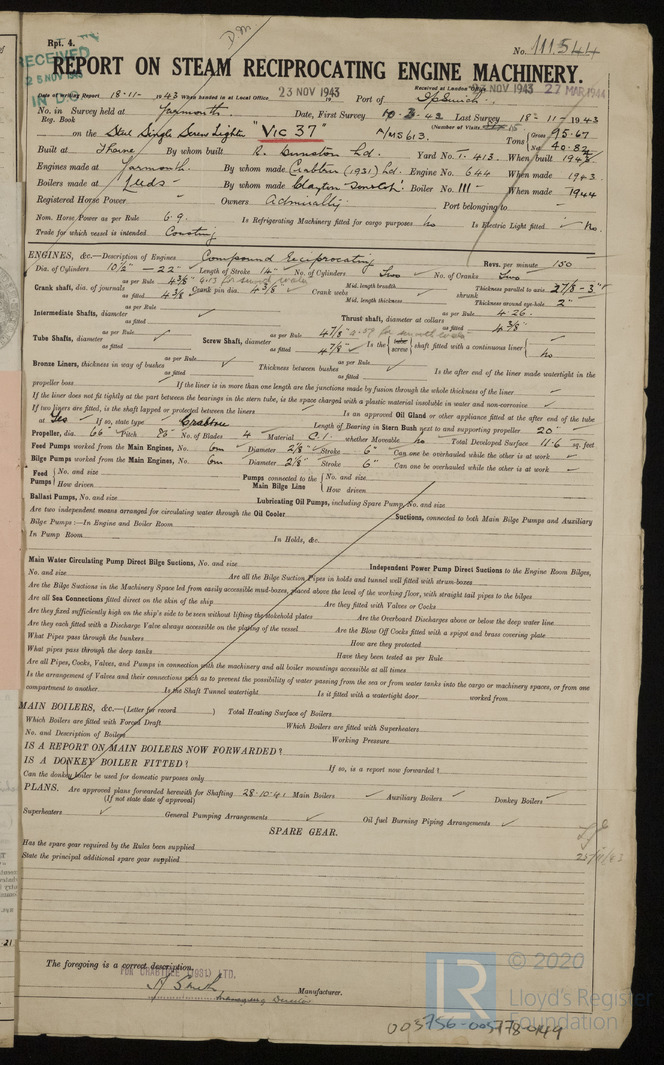 Rpt. 4.
No. 111544
RECEIVED
25 NOV 1943
IN D.O.
REPORT ON STEAM RECIPROCATING ENGINE MACHINERY.
Received at London Office NOV 1943 27 MAR 1944
Date of writing Report 18-11-1943 When handed in at Local Office 23 NOV 1943 Port of Ipswich
No. in Reg. Book Survey held at Yarmouth. Date, First Survey 10-3-43 Last Survey 18-11-1943
(Number of Visits 15)
on the Steel Single Screw Lighter "VIC 37" A/MS 613. Tons Gross 95.67 Net 40.82
Built at Thorne By whom built R. Dunston Ltd. Yard No. T. 413. When built 194
Engines made at Yarmouth. By whom made Crabtree (1931) Ltd. Engine No. 644 When made 1943.
Boilers made at Leeds By whom made Clayton Son & Co Ltd Boiler No. 111 When made 1944
Registered Horse Power Owners Admiralty. Port belonging to
Nom. Horse Power as per Rule 69. Is Refrigerating Machinery fitted for cargo purposes No Is Electric Light fitted No.
Trade for which vessel is intended Coasting
ENGINES, &c.—Description of Engines Compound Reciprocating Revs. per minute 150
Dia. of Cylinders 10½" — 22" Length of Stroke 14" No. of Cylinders Two No. of Cranks Two
Crank shaft, dia. of journals as per Rule 4⅜" 4.13 for smooth water as fitted 4⅜ Crank pin dia. 4⅜" Crank webs Mid. length breadth Mid. length thickness shrunk Thickness parallel to axis 2⅞ - 3" Thickness around eye-hole 2"
Intermediate Shafts, diameter as per Rule as fitted Thrust shaft, diameter at collars as per Rule 4.26. as fitted 4⅜"
Tube Shafts, diameter as per Rule as fitted Screw Shaft, diameter as per Rule 4⅞" as fitted 4⅞" Is the tube screw shaft fitted with a continuous liner No
Bronze Liners, thickness in way of bushes as per Rule as fitted Thickness between bushes as per Rule as fitted Is the after end of the liner made watertight in the
propeller boss If the liner is in more than one length are the junctions made by fusion through the whole thickness of the liner
If the liner does not fit tightly at the part between the bearings in the stern tube, is the space charged with a plastic material insoluble in water and non-corrosive
If two liners are fitted, is the shaft lapped or protected between the liners Is an approved Oil Gland or other appliance fitted at the after end of the tube
at Yes If so, state type Crabtree Length of Bearing in Stern Bush next to and supporting propeller 20"
Propeller, dia. 66" Pitch 85" No. of Blades 4 Material C.I. whether Moveable No Total Developed Surface 11.6 sq. feet
Feed Pumps worked from the Main Engines, No. One Diameter 2⅛" Stroke 6" Can one be overhauled while the other is at work
Bilge Pumps worked from the Main Engines, No. One Diameter 2⅛" Stroke 6" Can one be overhauled while the other is at work
Feed Pumps No. and size How driven Pumps connected to the Main Bilge Line No. and size How driven
Ballast Pumps, No. and size Lubricating Oil Pumps, including Spare Pump, No. and size
Are two independent means arranged for circulating water through the Oil Cooler Suctions, connected to both Main Bilge Pumps and Auxiliary
Bilge Pumps :—In Engine and Boiler Room
In Pump Room In Holds, &c.
Main Water Circulating Pump Direct Bilge Suctions, No. and size Independent Power Pump Direct Suctions to the Engine Room Bilges,
No. and size Are all the Bilge Suction Pipes in holds and tunnel well fitted with strum-boxes
Are the Bilge Suctions in the Machinery Space led from easily accessible mud-boxes, placed above the level of the working floor, with straight tail pipes to the bilges
Are all Sea Connections fitted direct on the skin of the ship Are they fitted with Valves or Cocks
Are they fixed sufficiently high on the ship's side to be seen without lifting the stokehold plates Are the Overboard Discharges above or below the deep water line
Are they each fitted with a Discharge Valve always accessible on the plating of the vessel Are the Blow Off Cocks fitted with a spigot and brass covering plate
What Pipes pass through the bunkers How are they protected
What pipes pass through the deep tanks Have they been tested as per Rule
Are all Pipes, Cocks, Valves, and Pumps in connection with the machinery and all boiler mountings accessible at all times
Is the arrangement of Valves and their connections such as to prevent the possibility of water passing from the sea or from water tanks into the cargo or machinery spaces, or from one
compartment to another Is the Shaft Tunnel watertight Is it fitted with a watertight door worked from
MAIN BOILERS, &c.—(Letter for record ) Total Heating Surface of Boilers
Which Boilers are fitted with Forced Draft Which Boilers are fitted with Superheaters
No. and Description of Boilers Working Pressure
IS A REPORT ON MAIN BOILERS NOW FORWARDED?
IS A DONKEY BOILER FITTED? If so, is a report now forwarded?
Can the donkey boiler be used for domestic purposes only
PLANS. Are approved plans forwarded herewith for Shafting 28-10-41 Main Boilers Auxiliary Boilers Donkey Boilers
(If not state date of approval)
Superheaters General Pumping Arrangements Oil fuel Burning Piping Arrangements
SPARE GEAR.
Has the spare gear required by the Rules been supplied
State the principal additional spare gear supplied
The foregoing is a correct description,
FOR CRABTREE (1931) LTD.
A Smith
Managing Director Manufacturer.
© 2020
LR
Lloyd's Register
Foundation
003756-003778-0149